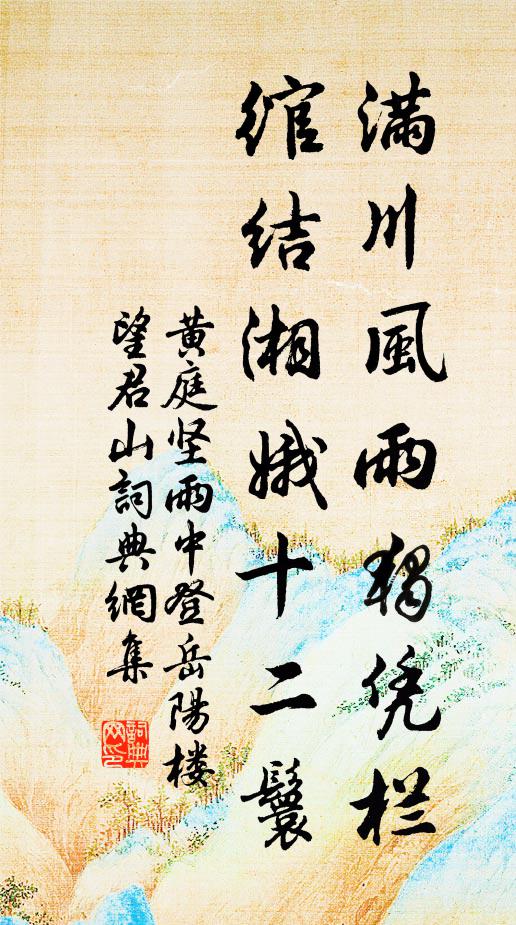 满川風雨獨凭栏
綰结湘娥十二鬟
黄庭坚雨中登岳陽楼
望君山詞典網集
詞典网印